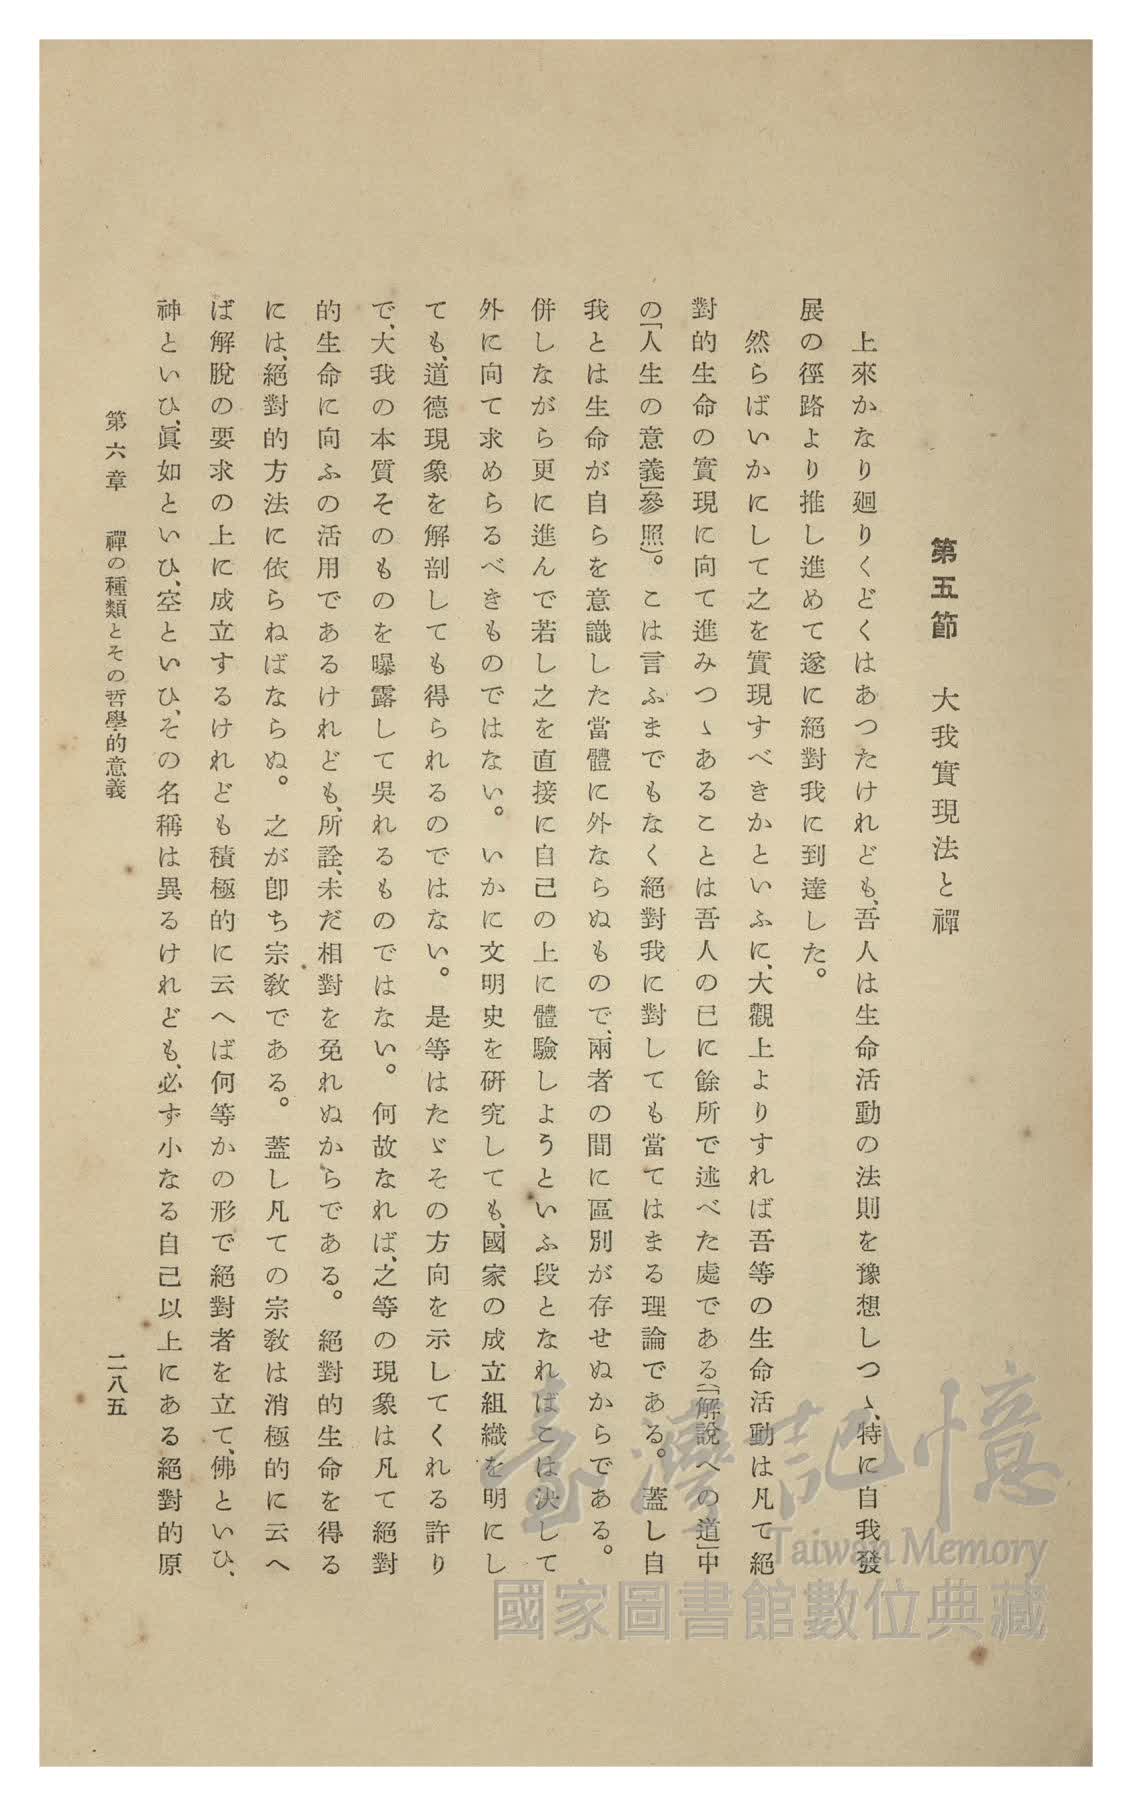 第五節　大我實現法と禪
上來かなり廻りくどくはあつたけれども、吾人は生命活動の法則を豫想しつゝ、特に自我發
展の徑路より推し進めて遂に絕對我に到達した。
然らばいかにして之を實現すべきかといふに、大觀上よりすれば吾等の生命活動は凡て絕
對的生命の實現に向て進みつゝあることは吾人の已に餘所で述べた處である(「解說への道」中
の「人生の意義」參照)。こは言ふまでもなく絕對我に對しても當てはまる理論である。蓋し自
我とは生命が自らを意識した當體に外ならぬもので、兩者の間に區別が存せぬからである。
併しながら更に進んで若し之を直接に自己の上に體驗しようといふ段となればこは決して
外に向て求めらるべきものではない。いかに文明史を研究しても、國家の成立組織を明にし
ても、道德現象を解剖しても得られるのではない。是等はたゞその方向を示してくれる許り
で、大我の本質そのものを曝露して吳れるものではない。何故なれば、之等の現象は凡て絕對
的生命に向ふの活用であるけれども、所詮、未だ相對を免れぬからである。絕對的生命を得る
には、絕對的方法に依らねばならぬ。之が卽ち宗敎である。蓋し凡ての宗敎は消極的に云へ
ば解脫の要求の上に成立するけれども積極的に云へば何等かの形で絕對者を立て、佛といひ、
神といひ、眞如といひ、空といひ、その名稱は異るけれども、必ず小なる自己以上にある絕對的原
第六章　禪の種類とその哲學的意義
二八五
臺灣記憶
Taiwan Memory
國家圖書館數位典藏